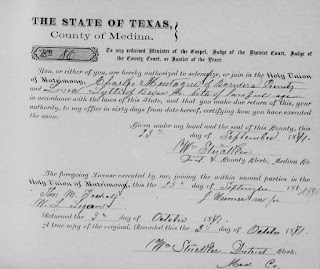 THE STATE OF TEXAS,
County of Medina.
No. 86
To any ordained Minister of the Gospel, Judge of the District Court, Judge of
the County Court, or Justice of the Peace.
You, or either of you, are hereby authorized to solemnize, or join in the Holy Union
of Matrimony, Charles Montague of Bandera County
and Louisa Lytle of Bexar
in accordance with the laws of this State, and that you make due return of this, your
authority, to my office in sixty days from date hereof, certifying how you have executed
the same.
Given under my hand and the seal of this County, this
23d day of September 1891.
Wm Stückler
Dist. & County Clerk, Medina
The foregoing License executed by me, joining the within named parties in the
Holy Union of Matrimony, this 25th day of September 1891
Returned the 3d day of October 1891.
A true copy of the original. Recorded this 3d day of October 1891.
Wm Stückler District Clerk
Med. Co.